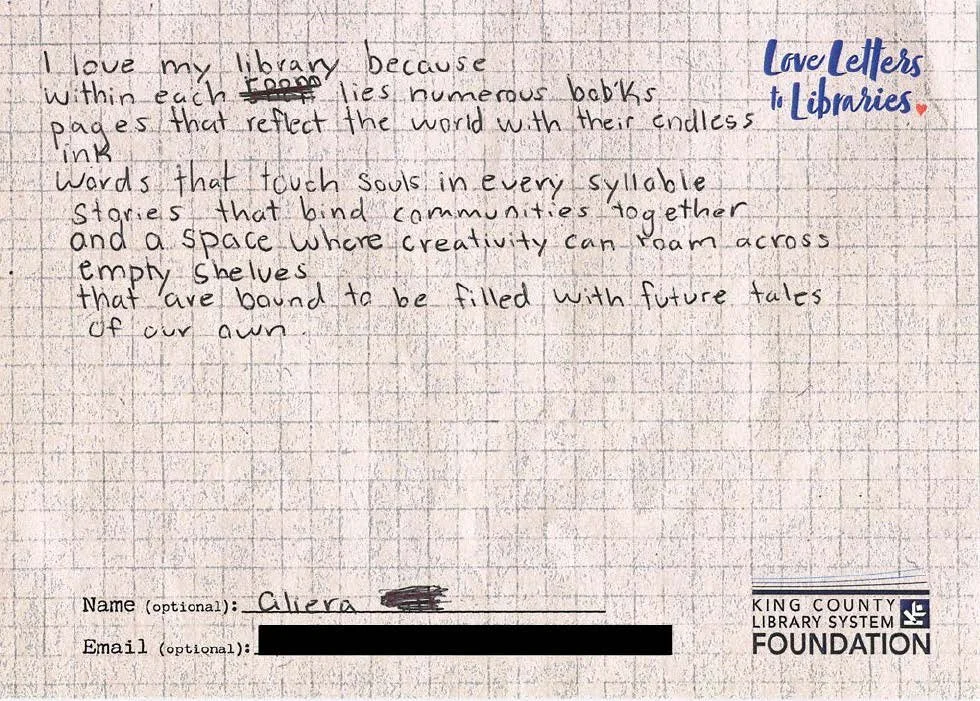 I love my library because
within each lies numerous books
pages that reflect the world with their endless
ink
Words that touch souls in every syllable
Stories that bind communities together
and a space where creativity can roam across
empty shelves
that are bound to be filled with future tales
of our own.
Love Letters
to Libraries.
Name (optional): aliera
Email (optional):
KING COUNTY
LIBRARY SYSTEM
FOUNDATION